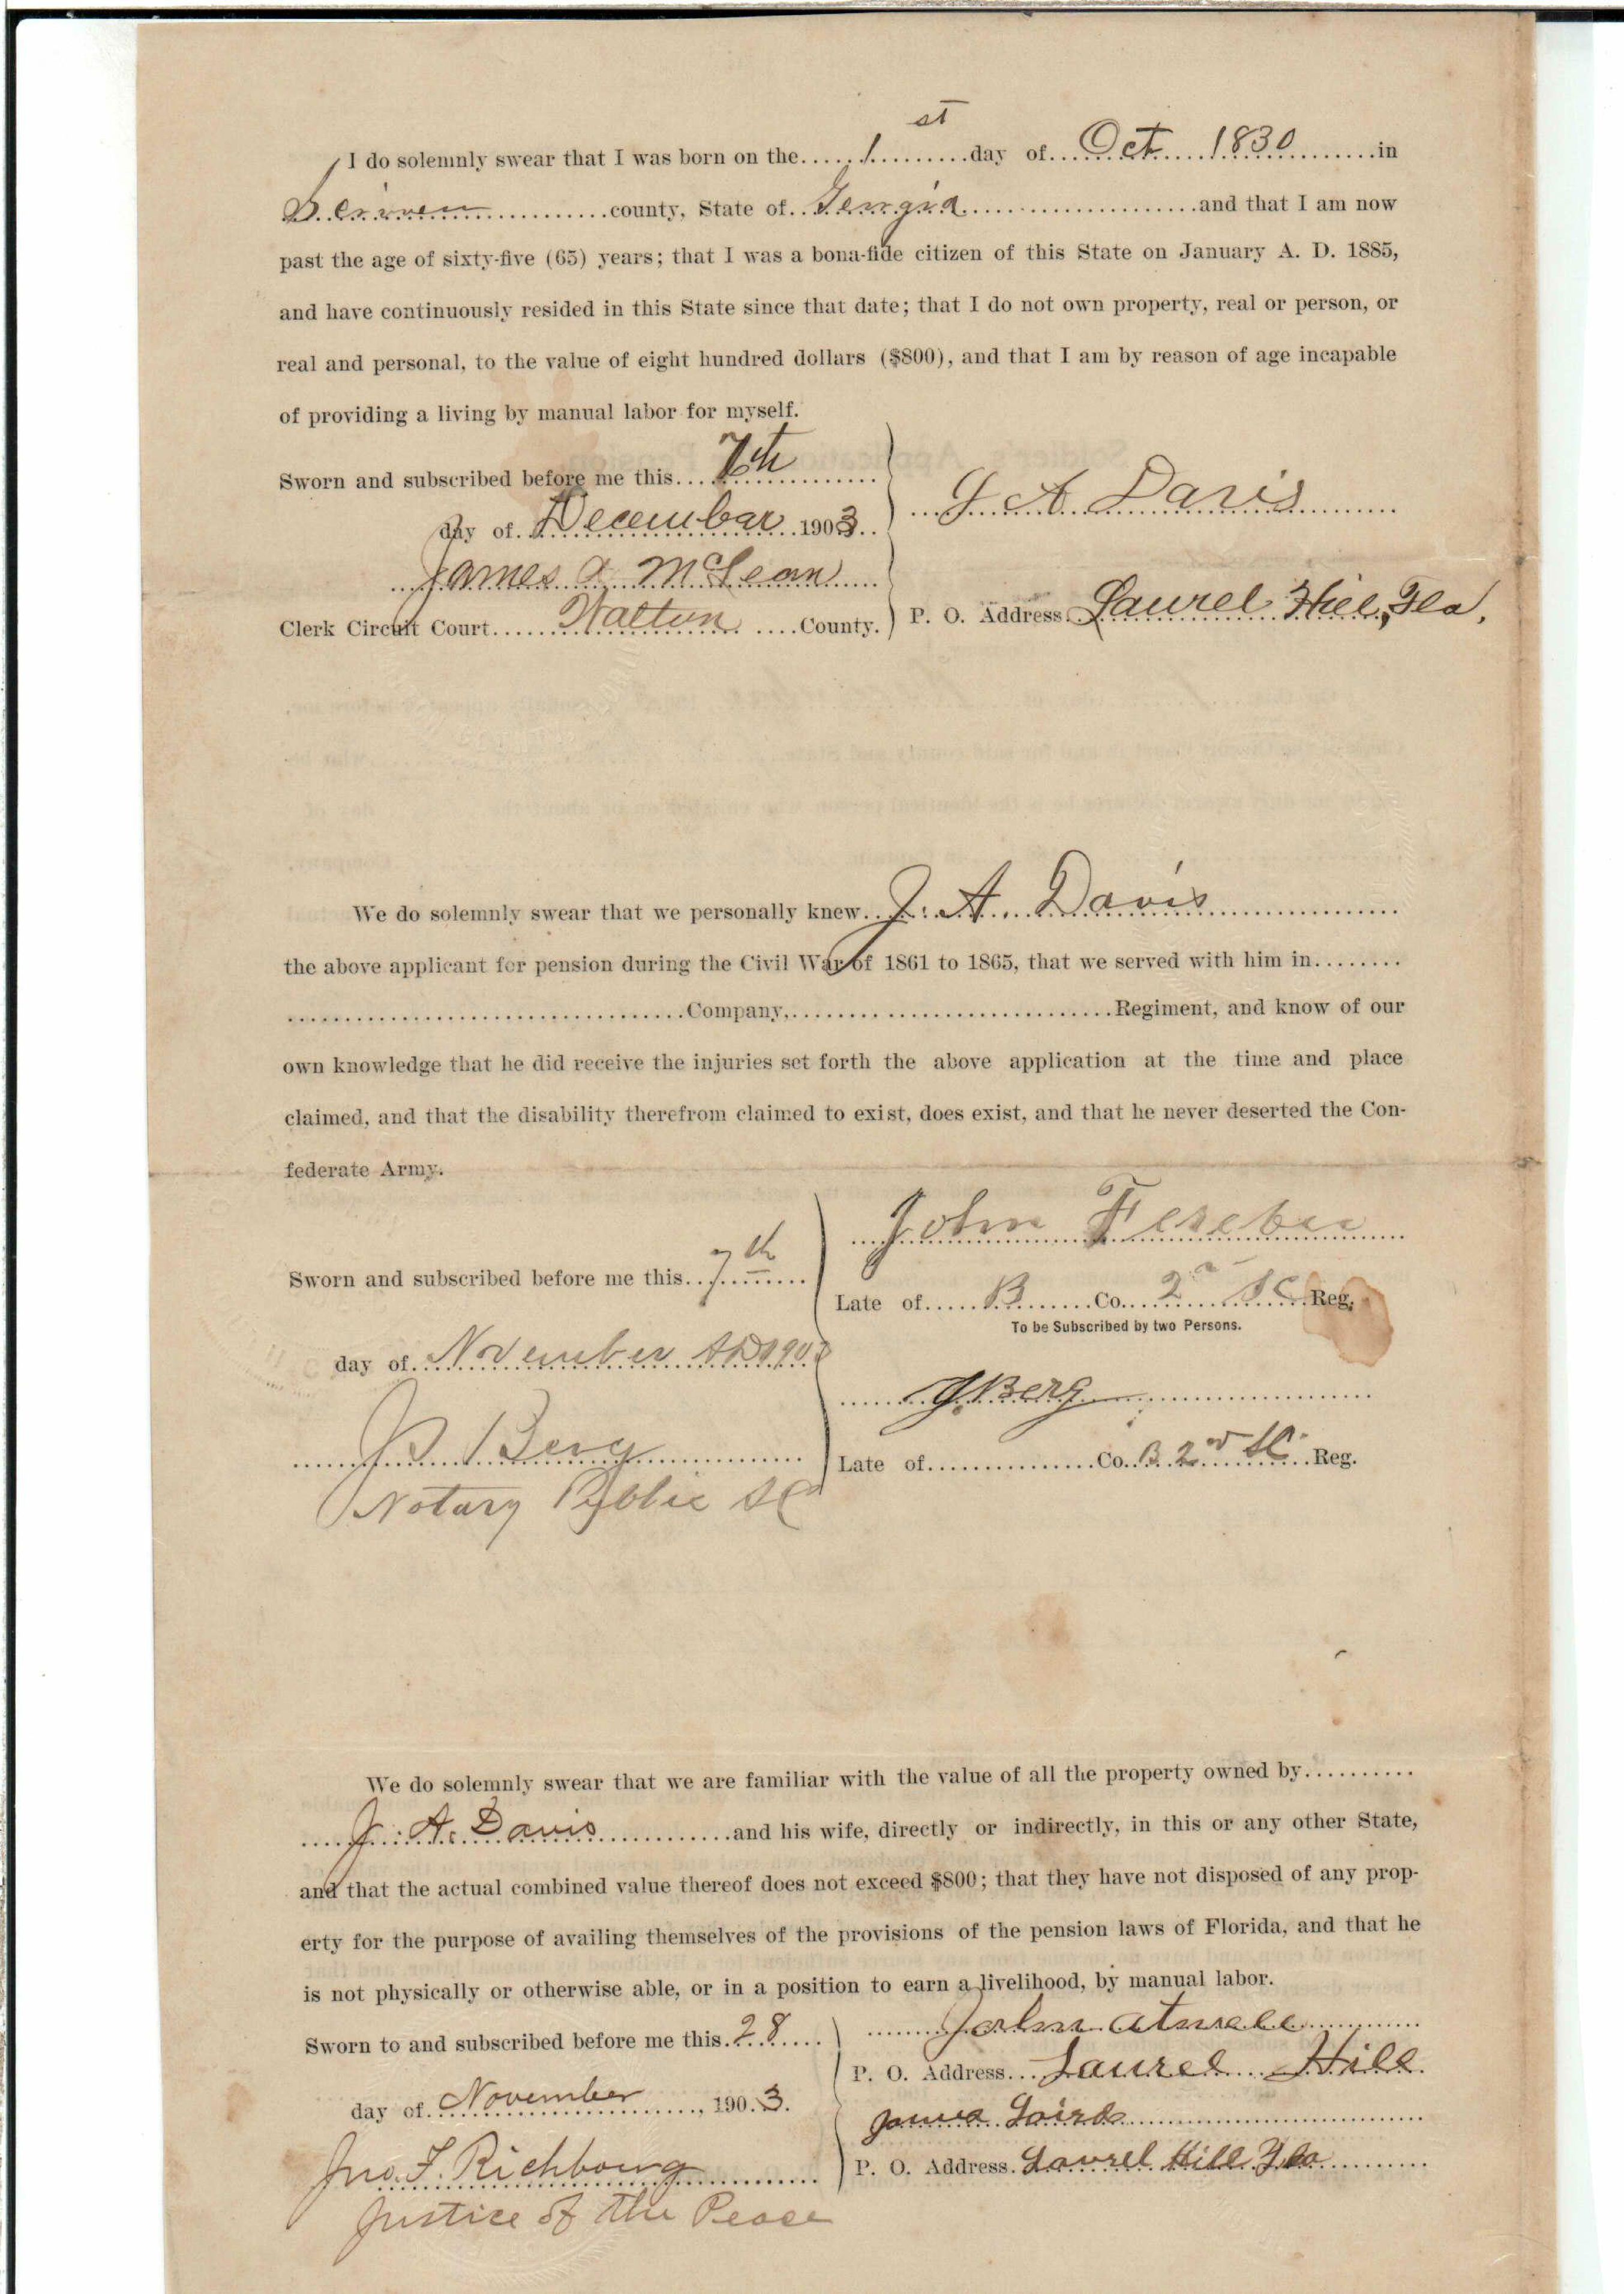 I do solemnly swear that I was born on the......1st.........day of....Oct.....1830.........in
Scriven............county, State of..Georgia......................and that I am now
past the age of sixty-five (65) years; that I was a bona-fide citizen of this State on January A. D. 1885,
and have continuously resided in this State since that date; that I do not own property, real or person, or
real and personal, to the value of eight hundred dollars ($800), and that I am by reason of age incapable
of providing a living by manual labor for myself.
Sworn and subscribed before me this....7th
day of. December 1903
J A Davis
James A McLean
Clerk Circuit Court......Walton.....County.
P. O. Address. Laurel Hill, Fla.
We do solemnly swear that we personally knew..J. A. Davis
the above applicant for pension during the Civil War of 1861 to 1865, that we served with him in........
...................................Company,.............................Regiment, and know of our
own knowledge that he did receive the injuries set forth the above application at the time and place
claimed, and that the disability therefrom claimed to exist, does exist, and that he never deserted the Con-
federate Army.
John
Sworn and subscribed before me this...7th
Late of.....B........Co....2d SC...Reg.
To be Subscribed by two Persons.
day of. November AD 1903
J. Berg
J. Berg
Late of...............Co..B. 2nd SC..Reg.
Notary Public SC
We do solemnly swear that we are familiar with the value of all the property owned by..........
J. A. Davis............and his wife, directly or indirectly, in this or any other State,
and that the actual combined value thereof does not exceed $800; that they have not disposed of any prop-
erty for the purpose of availing themselves of the provisions of the pension laws of Florida, and that he
is not physically or otherwise able, or in a position to earn a livelihood, by manual labor.
Sworn to and subscribed before me this.28....
John Atwell
P. O. Address...Laurel Hill
day of. November, 190.3.
James Laird
Jno. F. Richbourg
P. O. Address. Laurel Hill Fla
Justice of the Peace